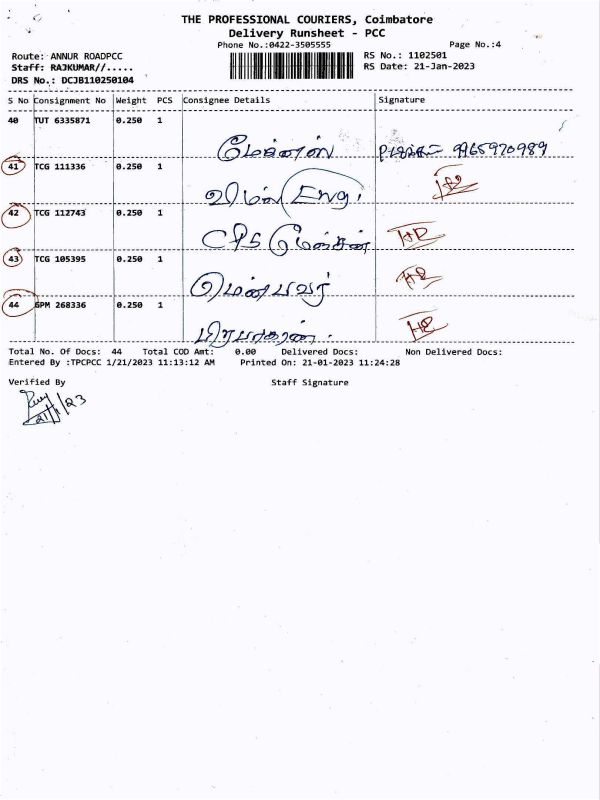 THE PROFESSIONAL COURIERS, Coimbatore
Delivery Runsheet - PCC
Phone No.:0422-3505555
Page No.:4
Route: ANNUR ROADPCC
RS No.: 1102501
Staff: RAJKUMAR//.....
RS Date: 21-Jan-2023
DRS No.: DCJB110250104
S No Consignment No Weight PCS Consignee Details Signature
40 TUT 6335871 0.250 1
9965970989
41 TCG 111336 0.250 1
விமல் Eng.
42 TCG 112743 0.250 1
43 TCG 105395 0.250 1
மென் பவர்
44 GPM 268336 0.250 1
பிரபாகரன்.
Total No. Of Docs: 44 Total COD Amt: 0.00 Delivered Docs: Non Delivered Docs:
Entered By :TPCPCC 1/21/2023 11:13:12 AM Printed On: 21-01-2023 11:24:28
Verified By Staff Signature
21/1/23